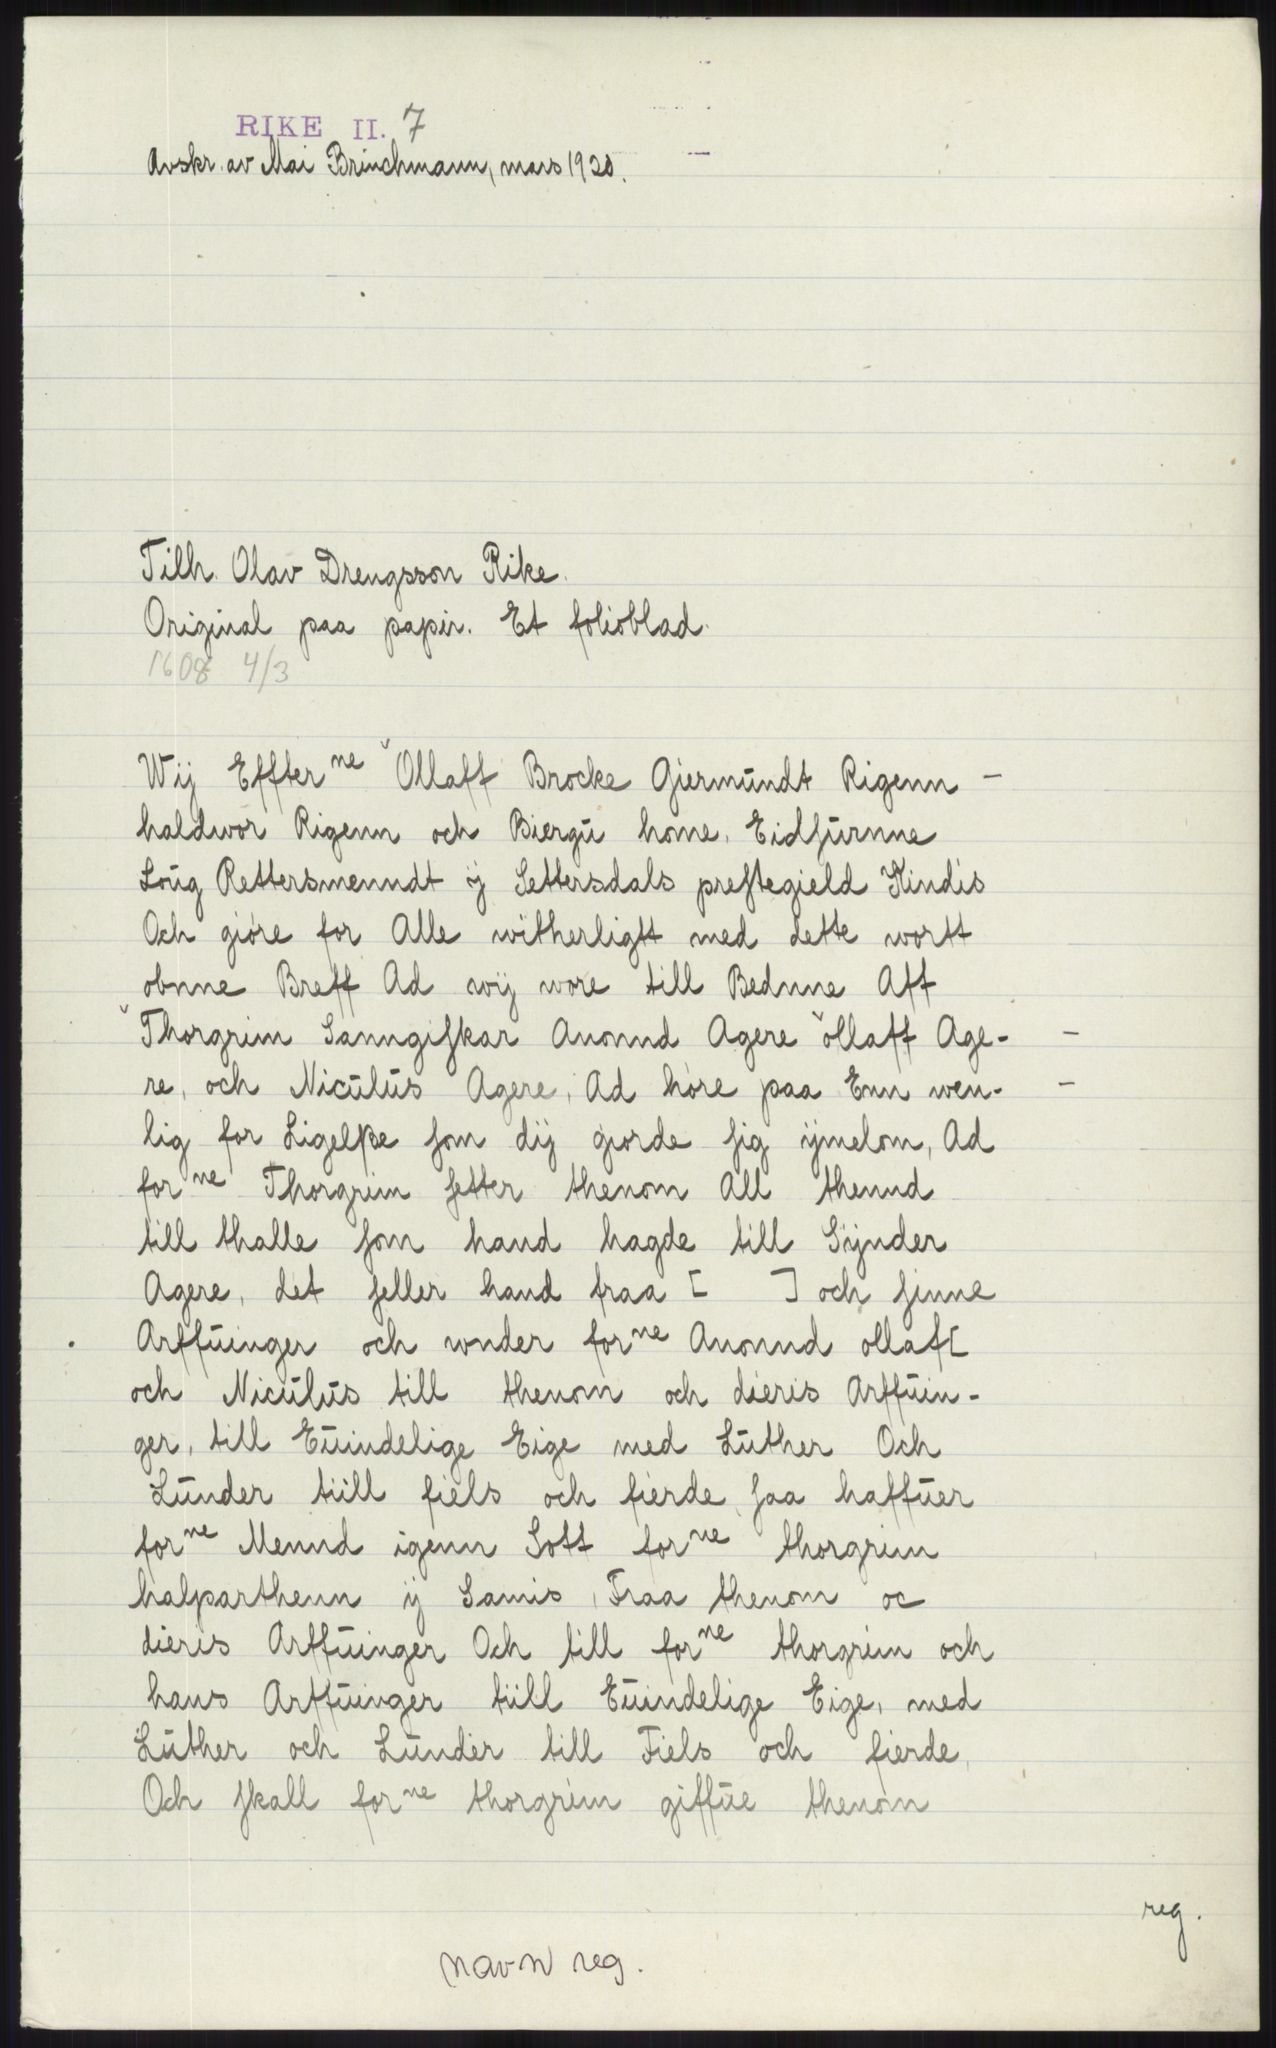 RIKE II. 7
Avskr. av Mai Brinchmann, mars 1920.
Tilh. Olav Drengsson Rike.
Original paa papir. Et folioblad.
1608 4/3
Wij Effter ne Ollaff Brocke Giermundt Rigenn —
haldwor Rigenn och Biergu home. Eidsurnne
Loug Rettersmenndt ij Settersdals prestegield Kindis
Och giøre for Alle witherligtt med dette wortt
obnne Breff Ad wij wore till Bednne Aff
Thorgrim Sanngiskar Anonnd Agere ollaff Age- —
re, och Niculus Agere, Ad høre paa Enn wen- —
lig for Ligelße som dij giorde sig ijmelom, Ad
for ne Thorgrim setter thenom All thennd
till thalle som hand hagde till Sÿnder
Agere, det seller hand fraa [ ] och sinne
Arffuinger och wnder for ne Anonnd ollaf[
och Niculus till thenom och dieris Arffuin-
ger, till Euindelige Eige med Luther Och
Lunder tiill fiels och fierde, saa haffuer
for ne Mennd igenn Sott for ne thorgrim
halparthenn ij Samis, Fraa thenom oc
dieris Arffuinger Och till for ne thorgrim och
hans Arffuinger tiill Euindelige Eige, med
Luther och Lunder till Fiels och fierde,
Och skall for ne thorgrim giffue thenom
reg.
navn reg.